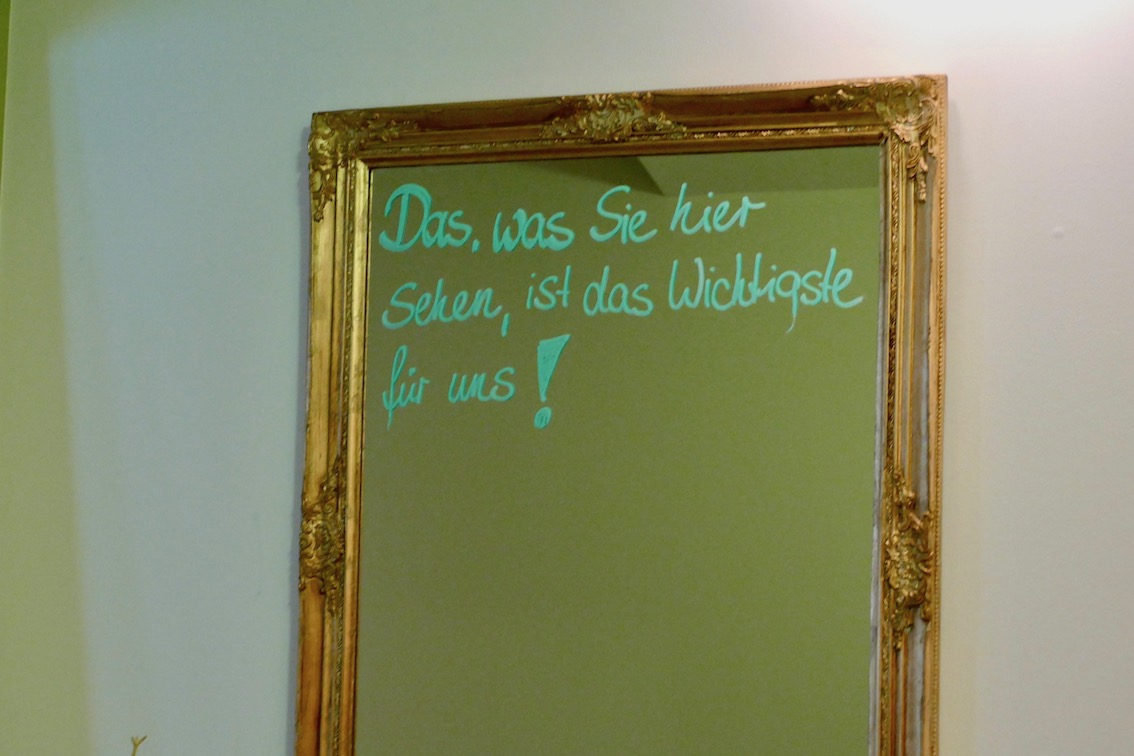 Das, was Sie hier
sehen, ist das Wichtigste
für uns!